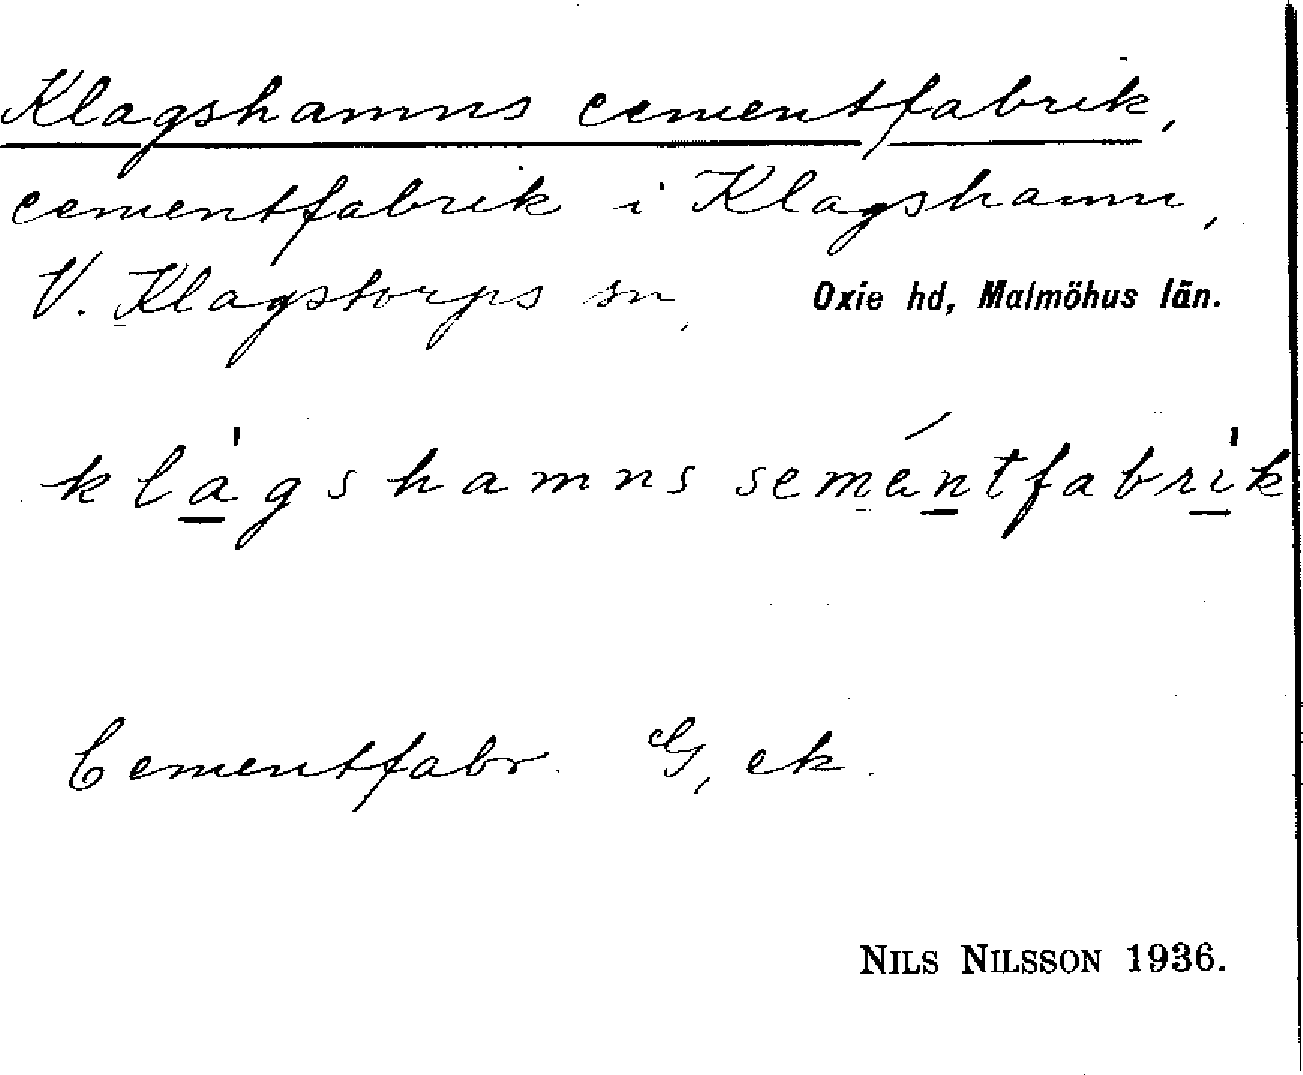 Klagshamns cementfabrik,
cementfabrik i Klagshamn,
V. Klagstorps sn, Oxie hd, Malmöhus län.
klágshamns seméntfabrík
Cementfabr. G, ek.
NILS NILSSON 1936.